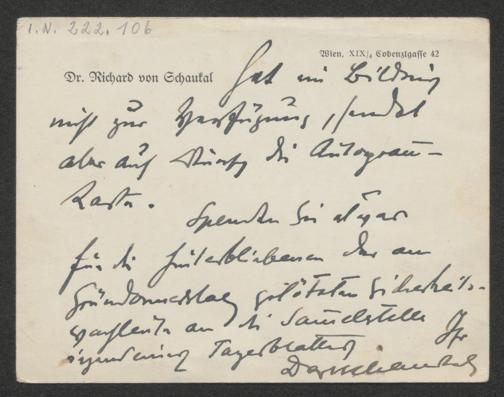 I.N. 222.106
Wien, XIX/, Cobenzlgasse 42
Dr. Richard von Schaukal
hat ein Bildnis
nicht zur Verfügung, sendet
aber auf Wunsch die Autogramm-
Karte.
Spenden Sie etwas
für die Hinterbliebenen der am
Gründonnerstag getöteten Sicherheits-
wachleute an die Sammelstelle
irgendeines Tagesblattes Ihr
DrRvSchaukal